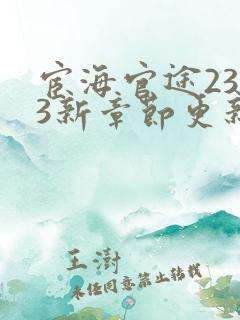 宦海官途23
3新章节更新
王澍
未经同意禁止转载